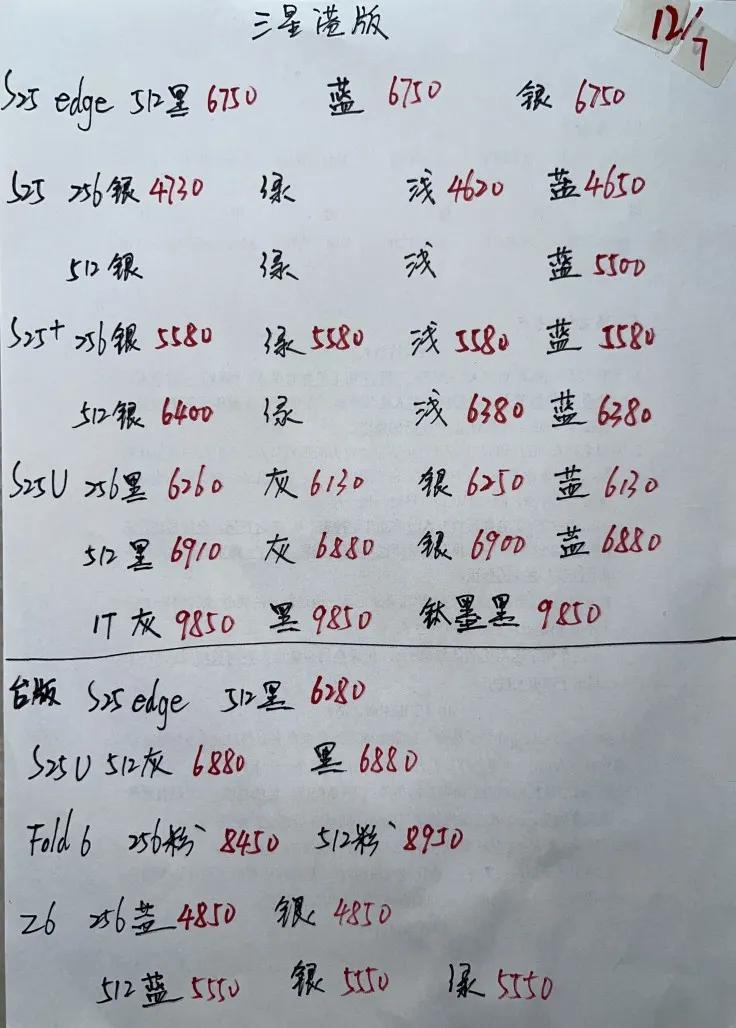 三星港版
12/7
S25 edge 512黑 6750 蓝 6750 银 6750
S25 256银 4730 绿 浅 4620 蓝 4650
512银 绿 浅 蓝 5500
S25+ 256银 5580 绿 5580 浅 5580 蓝 5580
512银 6400 绿 浅 6380 蓝 6380
S25U 256黑 6260 灰 6130 银 6250 蓝 6130
512黑 6910 灰 6880 银 6900 蓝 6880
1T灰 9850 黑 9850 钛墨黑 9850
台版 S25 edge 512黑 6280
S25U 512灰 6880 黑 6880
Fold 6 256粉 8450 512粉 8950
Z6 256蓝 4850 银 4850
512蓝 5550 银 5550 绿 5550